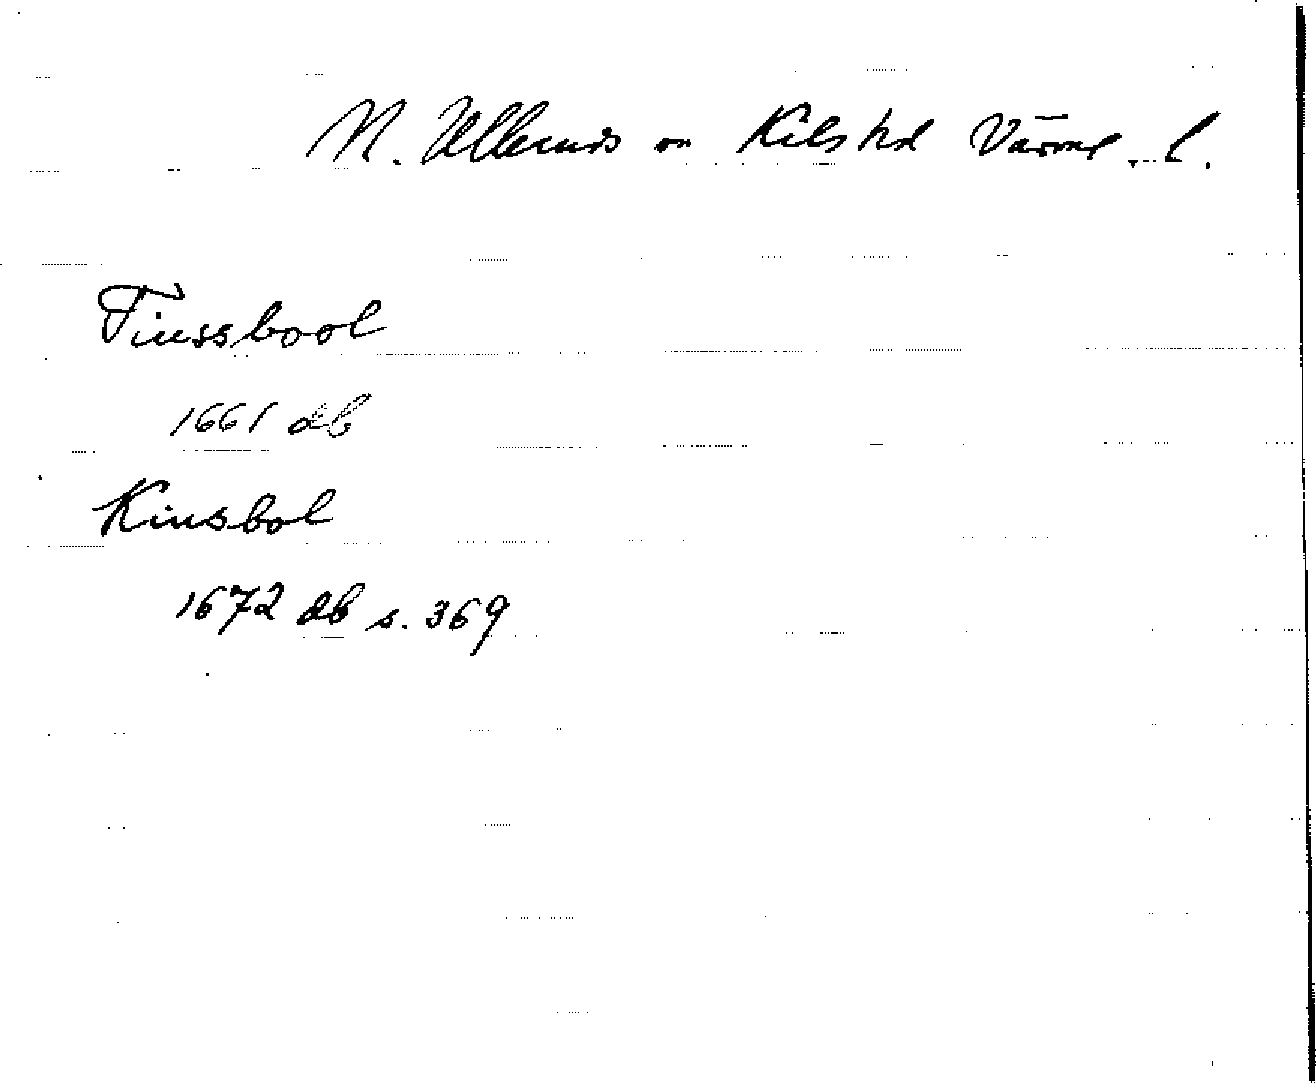 N. Ulleruds sn Kils hd Värml. l.
Tiussbool
1661 db
Kiusbol
1672 db s. 369